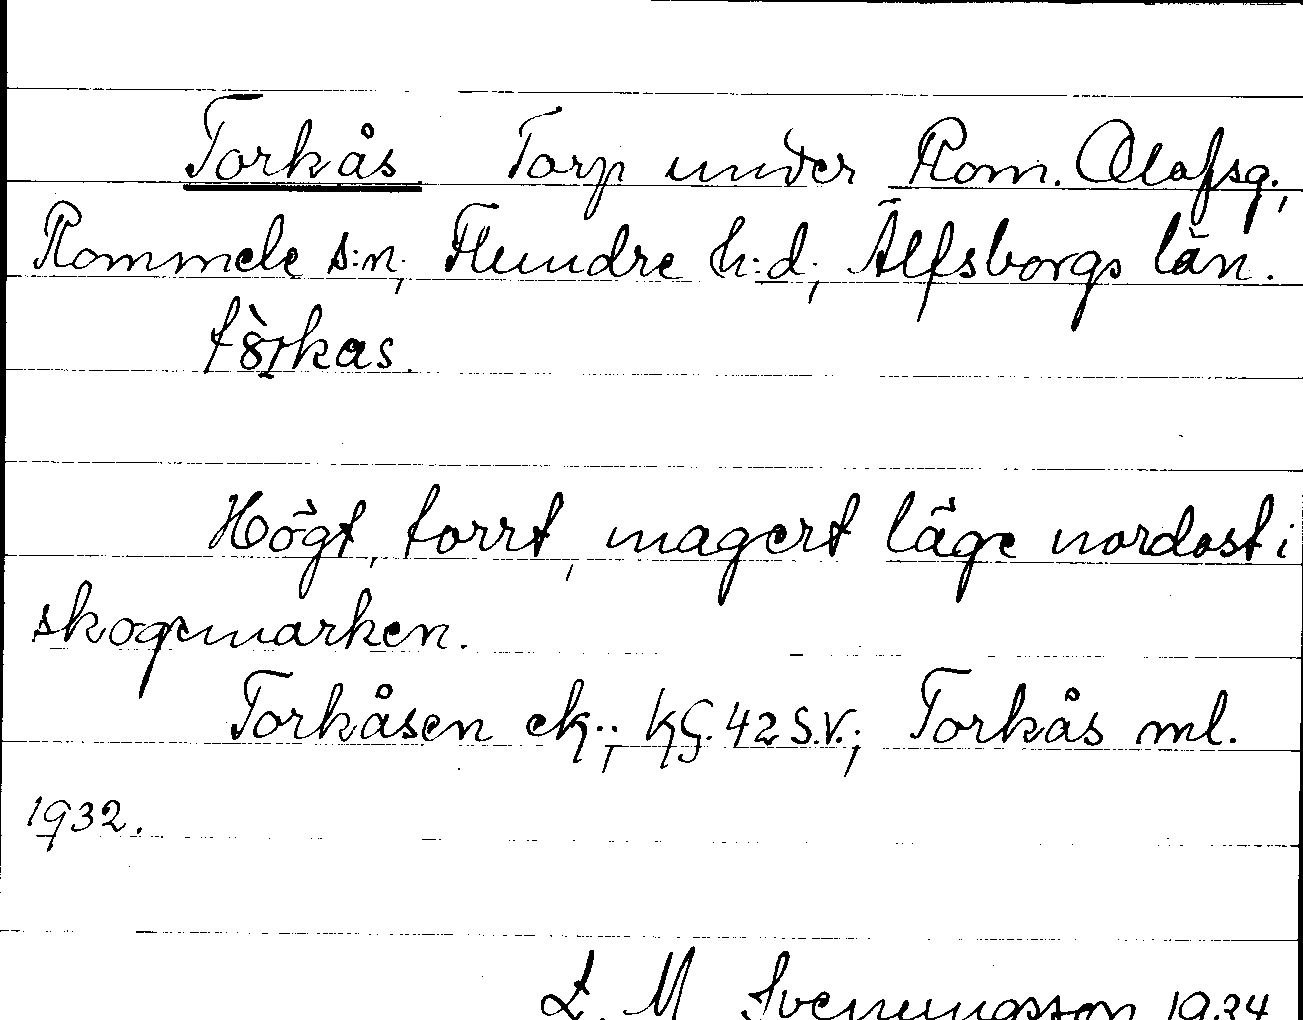 Torkås. Torp under Rom. Olofsg.,
Rommele s:n, Flundre h:d, Älfsborgs län.
Högt, torrt, magert läge nordost i
skogsmarken.
Torkåsen ek.; KG. 42 S.V.; Torkås ml.
1932.
L. M Svenungsson 1934